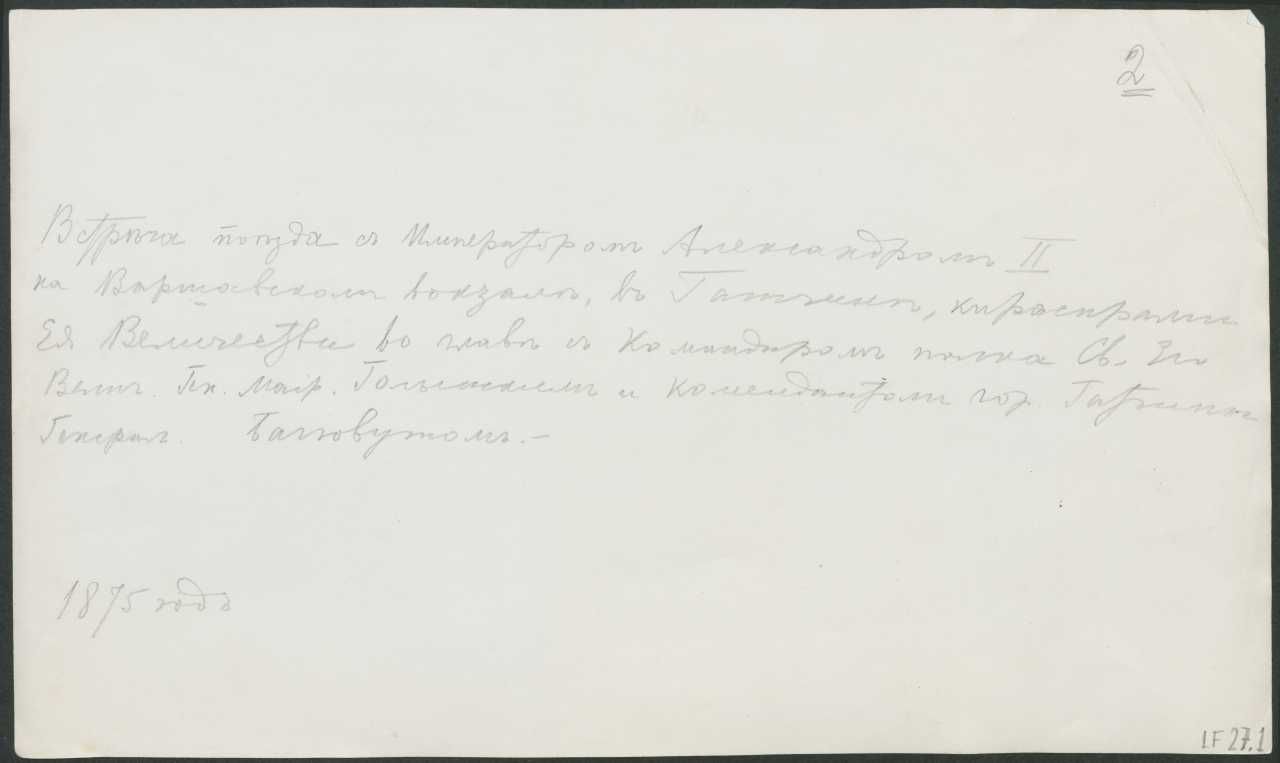 2
Встрѣча поѣзда съ Императоромъ Александромъ II
на Варшавскомъ вокзалѣ, въ Гатчинѣ, кирасирами
Ея Величества во главѣ съ Командиромъ полка Св. Его
Велич. Ген. Маiр. и Комендантомъ гор. Гатчины
Генерал. Багговутомъ. –
1875 годъ
LF 27.1